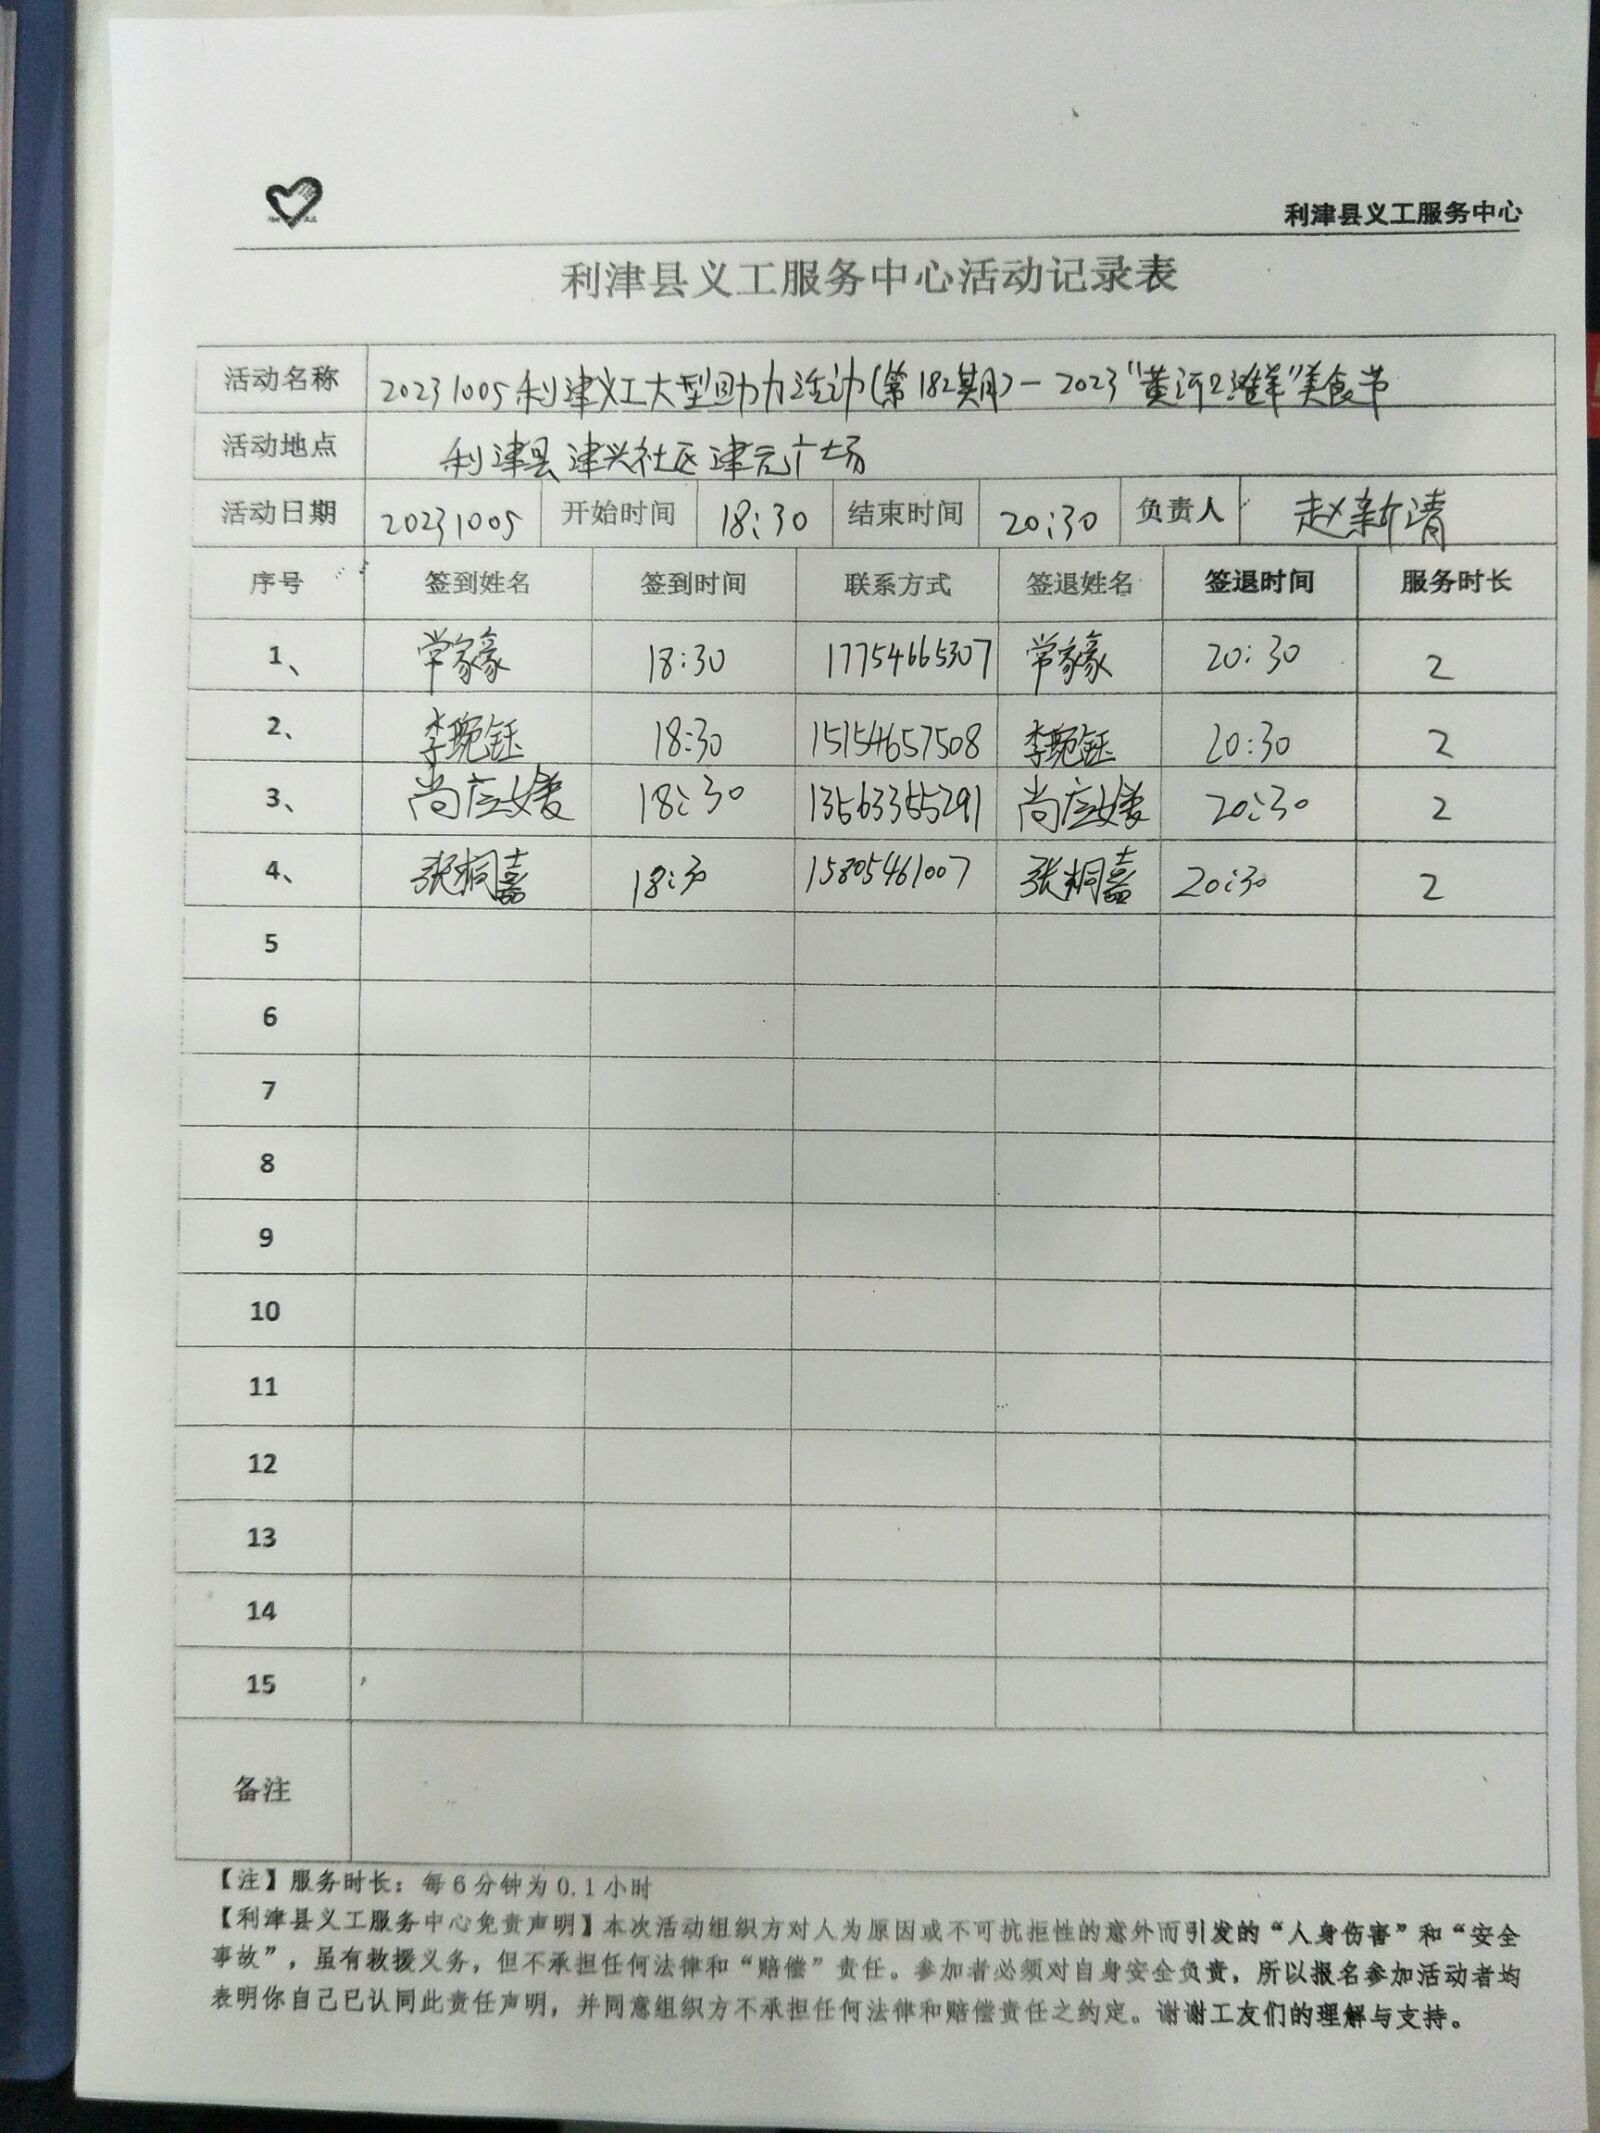 利津县义工服务中心
利津县义工服务中心活动记录表
活动名称 20231005利津义工大型助力活动(第182期)-2023"黄河口滩羊"美食节
活动地点 利津县津兴社区津元广场
活动日期 20231005 开始时间 18:30 结束时间 20:30 负责人 赵新清
序号 签到姓名 签到时间 联系方式 签退姓名 签退时间 服务时长
1、 常家豪 18:30 17754665307 常家豪 20:30 2
2、 李琬钰 18:30 15154657508 李琬钰 20:30 2
3、 尚应媛 18:30 13563355291 尚应媛 20:30 2
4、 张桐嘉 18:30 15805461007 张桐嘉 20:30 2
5
6
7
8
9
10
11
12
13
14
15
备注
【注】服务时长：每6分钟为0.1小时
【利津县义工服务中心免责声明】本次活动组织方对人为原因或不可抗拒性的意外而引发的“人身伤害”和“安全
事故”，虽有救援义务，但不承担任何法律和“赔偿”责任。参加者必须对自身安全负责，所以报名参加活动者均
表明你自己已认同此责任声明，并同意组织方不承担任何法律和赔偿责任之约定。谢谢工友们的理解与支持。